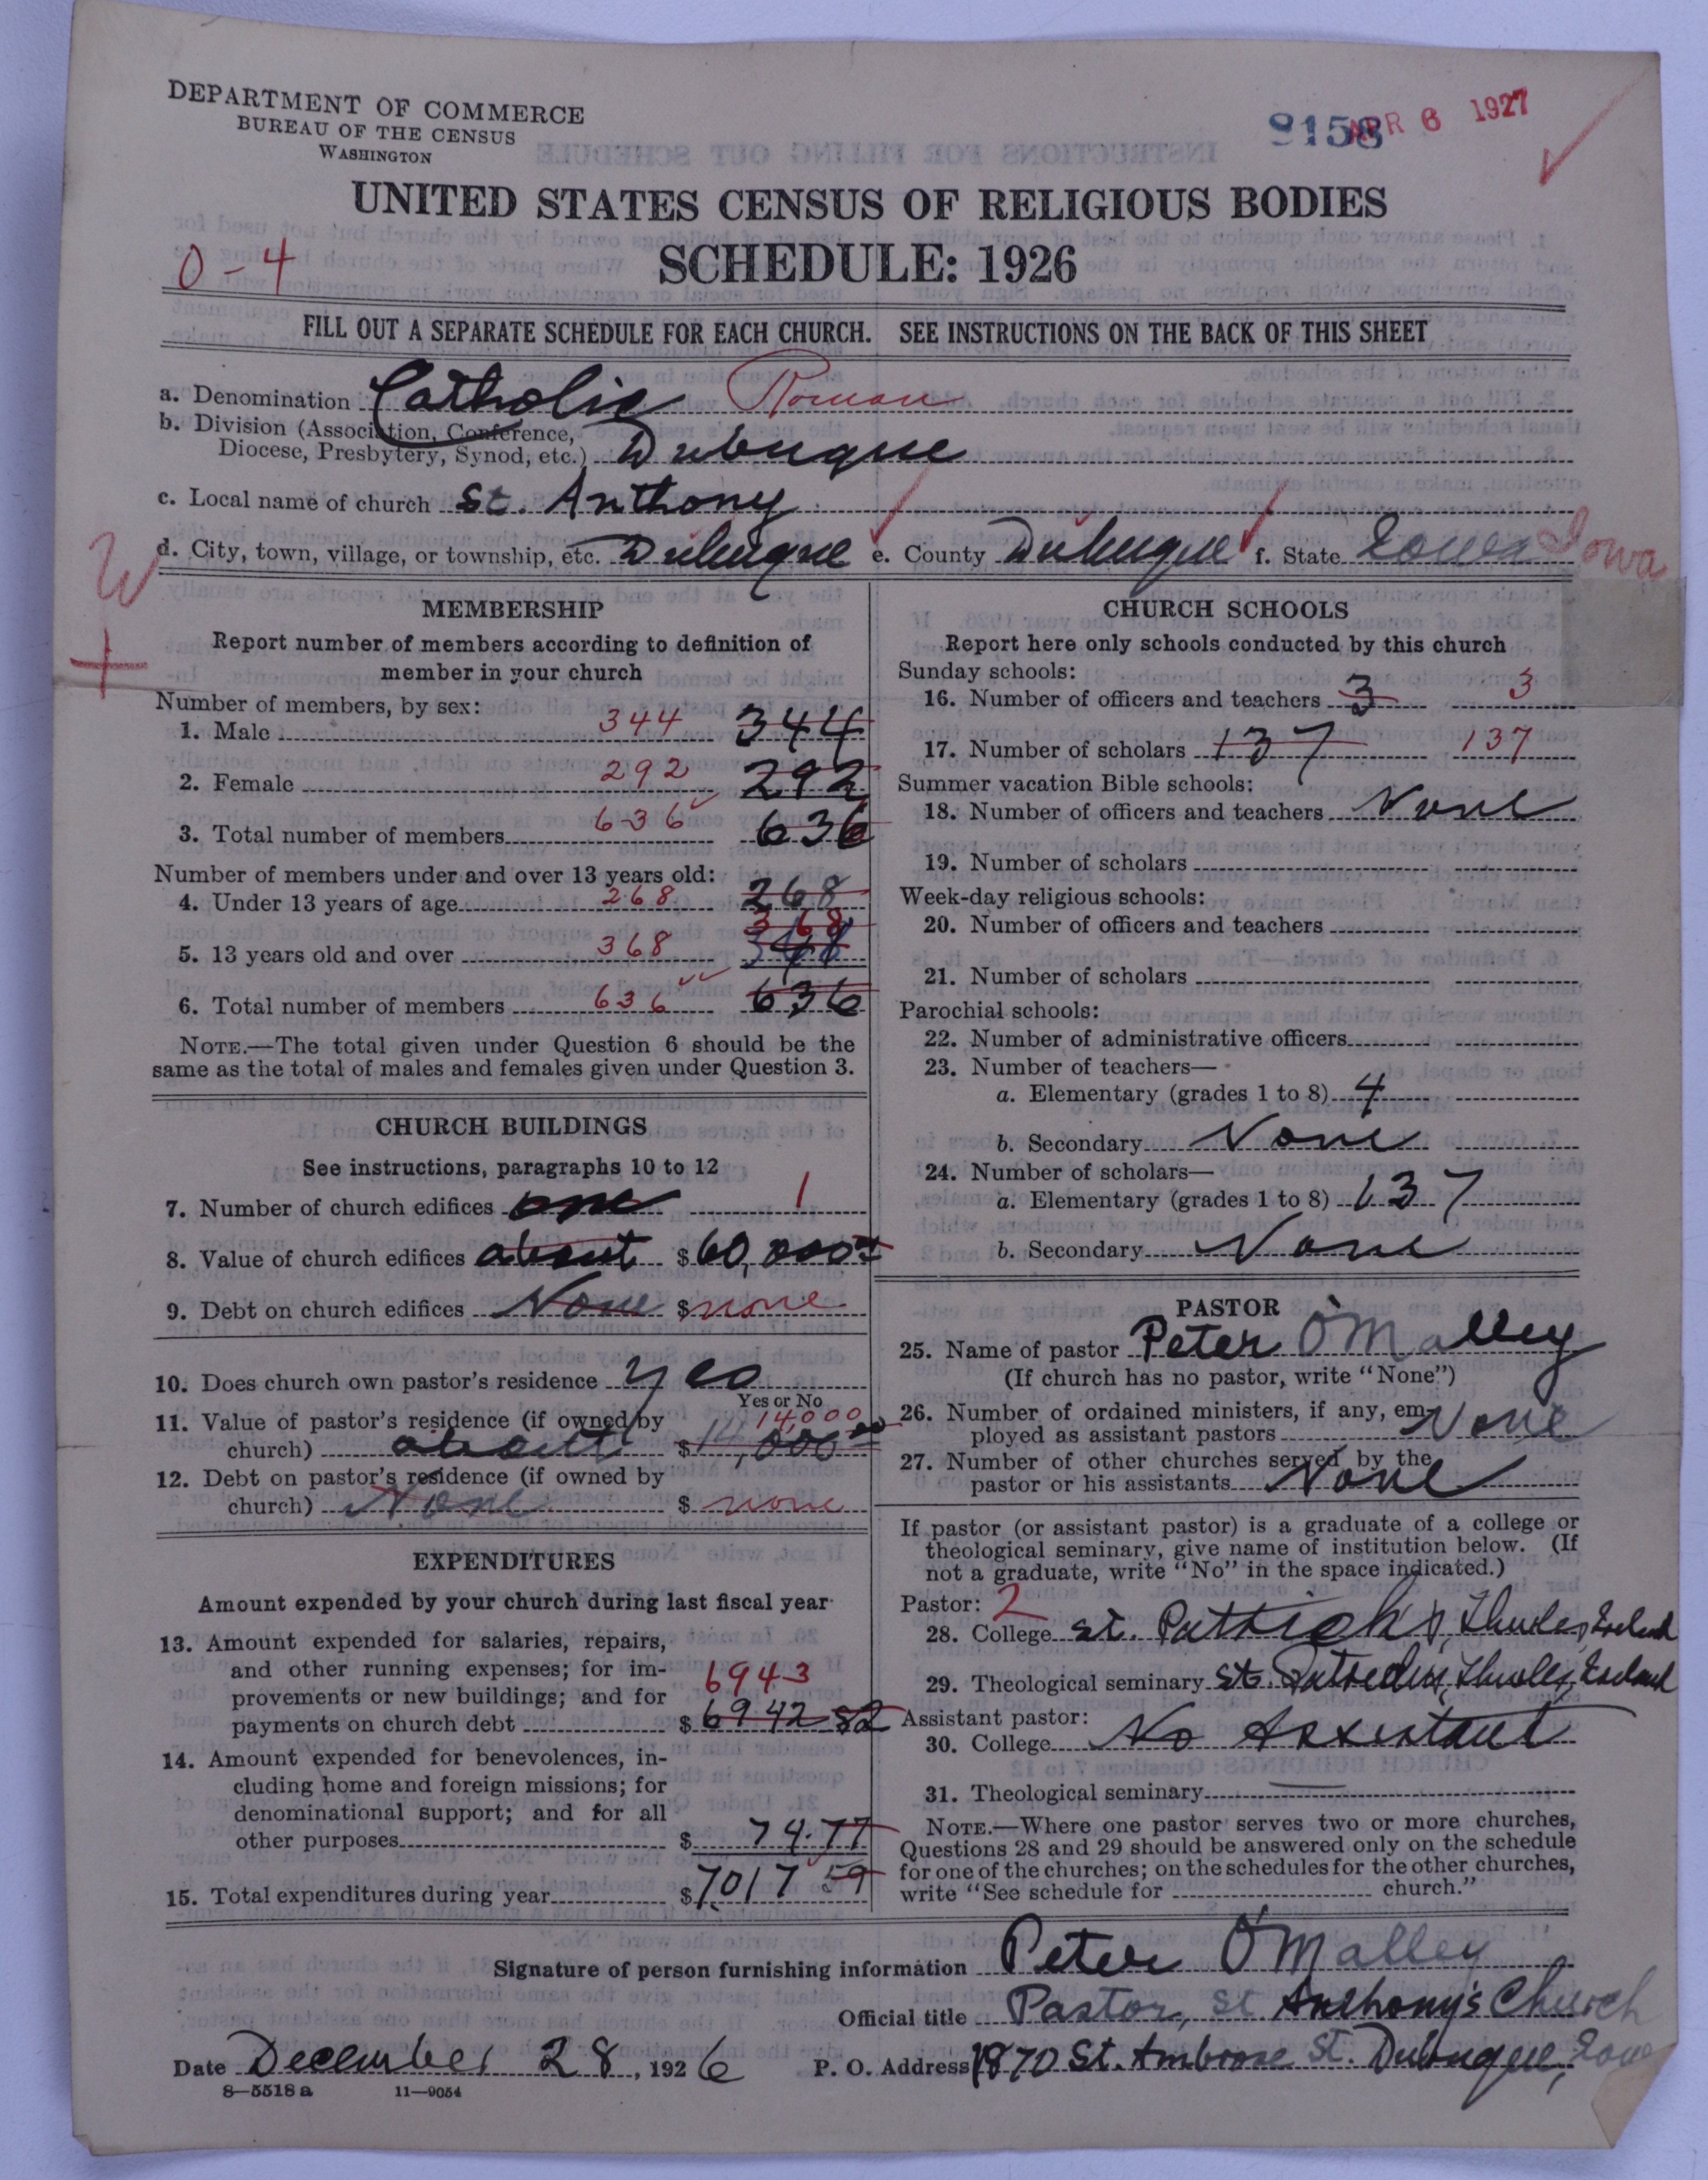 DEPARTMENT OF COMMERCE
BUREAU OF THE CENSUS
WASHINGTON
9158 APR 6 1927
UNITED STATES CENSUS OF RELIGIOUS BODIES
SCHEDULE: 1926
0-4
FILL OUT A SEPARATE SCHEDULE FOR EACH CHURCH. SEE INSTRUCTIONS ON THE BACK OF THIS SHEET
a. Denomination Catholic Roman
b. Division (Association, Conference,
Diocese, Presbytery, Synod, etc.) Dubuque
c. Local name of church St. Anthony
d. City, town, village, or township, etc. Dubuque e. County Dubuque f. State Iowa Iowa
MEMBERSHIP
Report number of members according to definition of
member in your church
Number of members, by sex:
1. Male 344 344
2. Female 292 292
3. Total number of members 636 636
Number of members under and over 13 years old:
4. Under 13 years of age 268 268
368
5. 13 years old and over 368
6. Total number of members 636 636
NOTE.—The total given under Question 6 should be the
same as the total of males and females given under Question 3.
CHURCH BUILDINGS
See instructions, paragraphs 10 to 12
7. Number of church edifices one 1
8. Value of church edifices about $60,000
9. Debt on church edifices None $none
10. Does church own pastor's residence yes
Yes or No
14,000
11. Value of pastor's residence (if owned by
church) about $14,000
12. Debt on pastor's residence (if owned by
church) None $none
EXPENDITURES
Amount expended by your church during last fiscal year
13. Amount expended for salaries, repairs,
and other running expenses; for im-
provements or new buildings; and for 6943
payments on church debt $6942 82
14. Amount expended for benevolences, in-
cluding home and foreign missions; for
denominational support; and for all
other purposes $ 74.77
15. Total expenditures during year $7017 59
CHURCH SCHOOLS
Report here only schools conducted by this church
Sunday schools:
16. Number of officers and teachers 3 3
17. Number of scholars 137 137
Summer vacation Bible schools:
18. Number of officers and teachers None
19. Number of scholars
Week-day religious schools:
20. Number of officers and teachers
21. Number of scholars
Parochial schools:
22. Number of administrative officers
23. Number of teachers—
a. Elementary (grades 1 to 8) 4
b. Secondary None
24. Number of scholars—
a. Elementary (grades 1 to 8) 137
b. Secondary None
PASTOR
25. Name of pastor Peter O'Malley
(If church has no pastor, write "None")
26. Number of ordained ministers, if any, em-
ployed as assistant pastors None
27. Number of other churches served by the
pastor or his assistants None
If pastor (or assistant pastor) is a graduate of a college or
theological seminary, give name of institution below. (If
not a graduate, write "No" in the space indicated.)
Pastor: 2
28. College St. Patrick's, Thurles, Ireland
29. Theological seminary St. Patrick's, Thurles, Ireland
Assistant pastor:
30. College No Assistant
31. Theological seminary
NOTE.—Where one pastor serves two or more churches,
Questions 28 and 29 should be answered only on the schedule
for one of the churches; on the schedules for the other churches,
write "See schedule for church."
Signature of person furnishing information Peter O'Malley
Official title Pastor, St Anthony's Church
Date December 28, 1926 P. O. Address 1870 St. Ambrose St. Dubuque, Iowa
8—5518a 11—9054